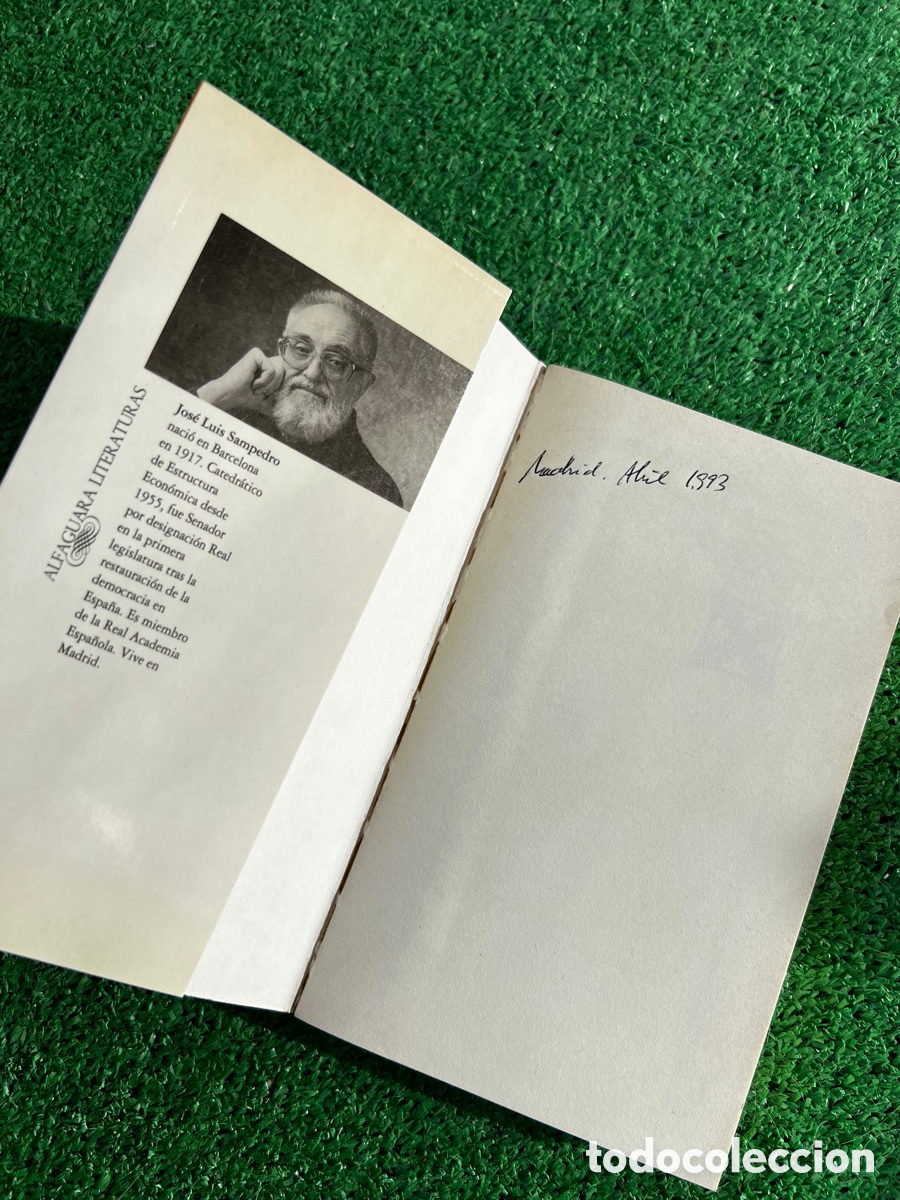 ALFAGUARA LITERATURAS
José Luis Sampedro
nació en Barcelona
en 1917. Catedrático
de Estructura
Económica desde
1955, fue Senador
por designación Real
en la primera
legislatura tras la
restauración de la
democracia en
España. Es miembro
de la Real Academia
Española. Vive en
Madrid.
Madrid. Abril 1993
todocoleccion